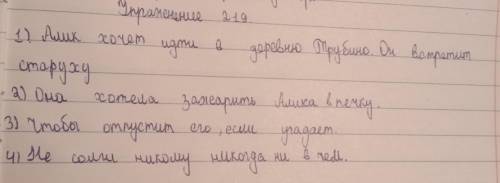 Упражнение 219
1) Алик хочет идти в деревню Трубино. Он встретит
старуху
2) Она хотела зажарить Алика в печку.
3) Чтобы отпустит его, если угадает.
4) Не солги никому никогда ни в чем.